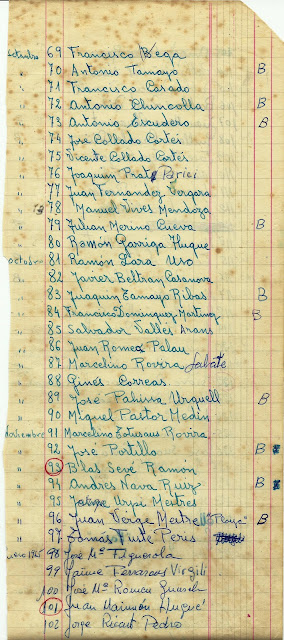 69 Francisco Vega
" 70 Antonio Tamayo B
" 71 Francisco Casado
" 72 Antonio Chincolla B
" 73 Antonio Escudero B
" 74 Jose Collado Cortes
" 75 Vicente Collado Cortes
" 76 Joaquin Prats
" 77 Juan Fernandez Vergara
" 78 Manuel Vives Mendoza
" 79 Julian Merino Cueva B
" 80 Ramon Garriga Huque
octubre 81 Ramon Lara Uso
" 82 Javier Beltran Casanova
" 83 Juaquin Tamayo Ribas B
" 84 Francisco Dominguez Martinez B
" 85 Salvador Valles Arans
" 86 Juan Romea Palau
" 87 Marcelino Rovira Sabate
" 88 Gines Correas.
" 89 José Pahisa Urquell B
" 90 Miguel Pastor Medin
91 Marcelino Rovira
" 92 Jose Portillo B
" 93 Blas Sevé Ramón
" 94 Andres Nava Ruiz B
" 95 Jorge Urpi Mestres
" 96 Juan Verge B
" 97 Tomas Fuste Peris
98 José Mª Figuerola
99 Jaime Ferrarons Virgili
100 José Mª Romeu
101 Juan Maimón Hugué
102 Jorge Ricart Pedró